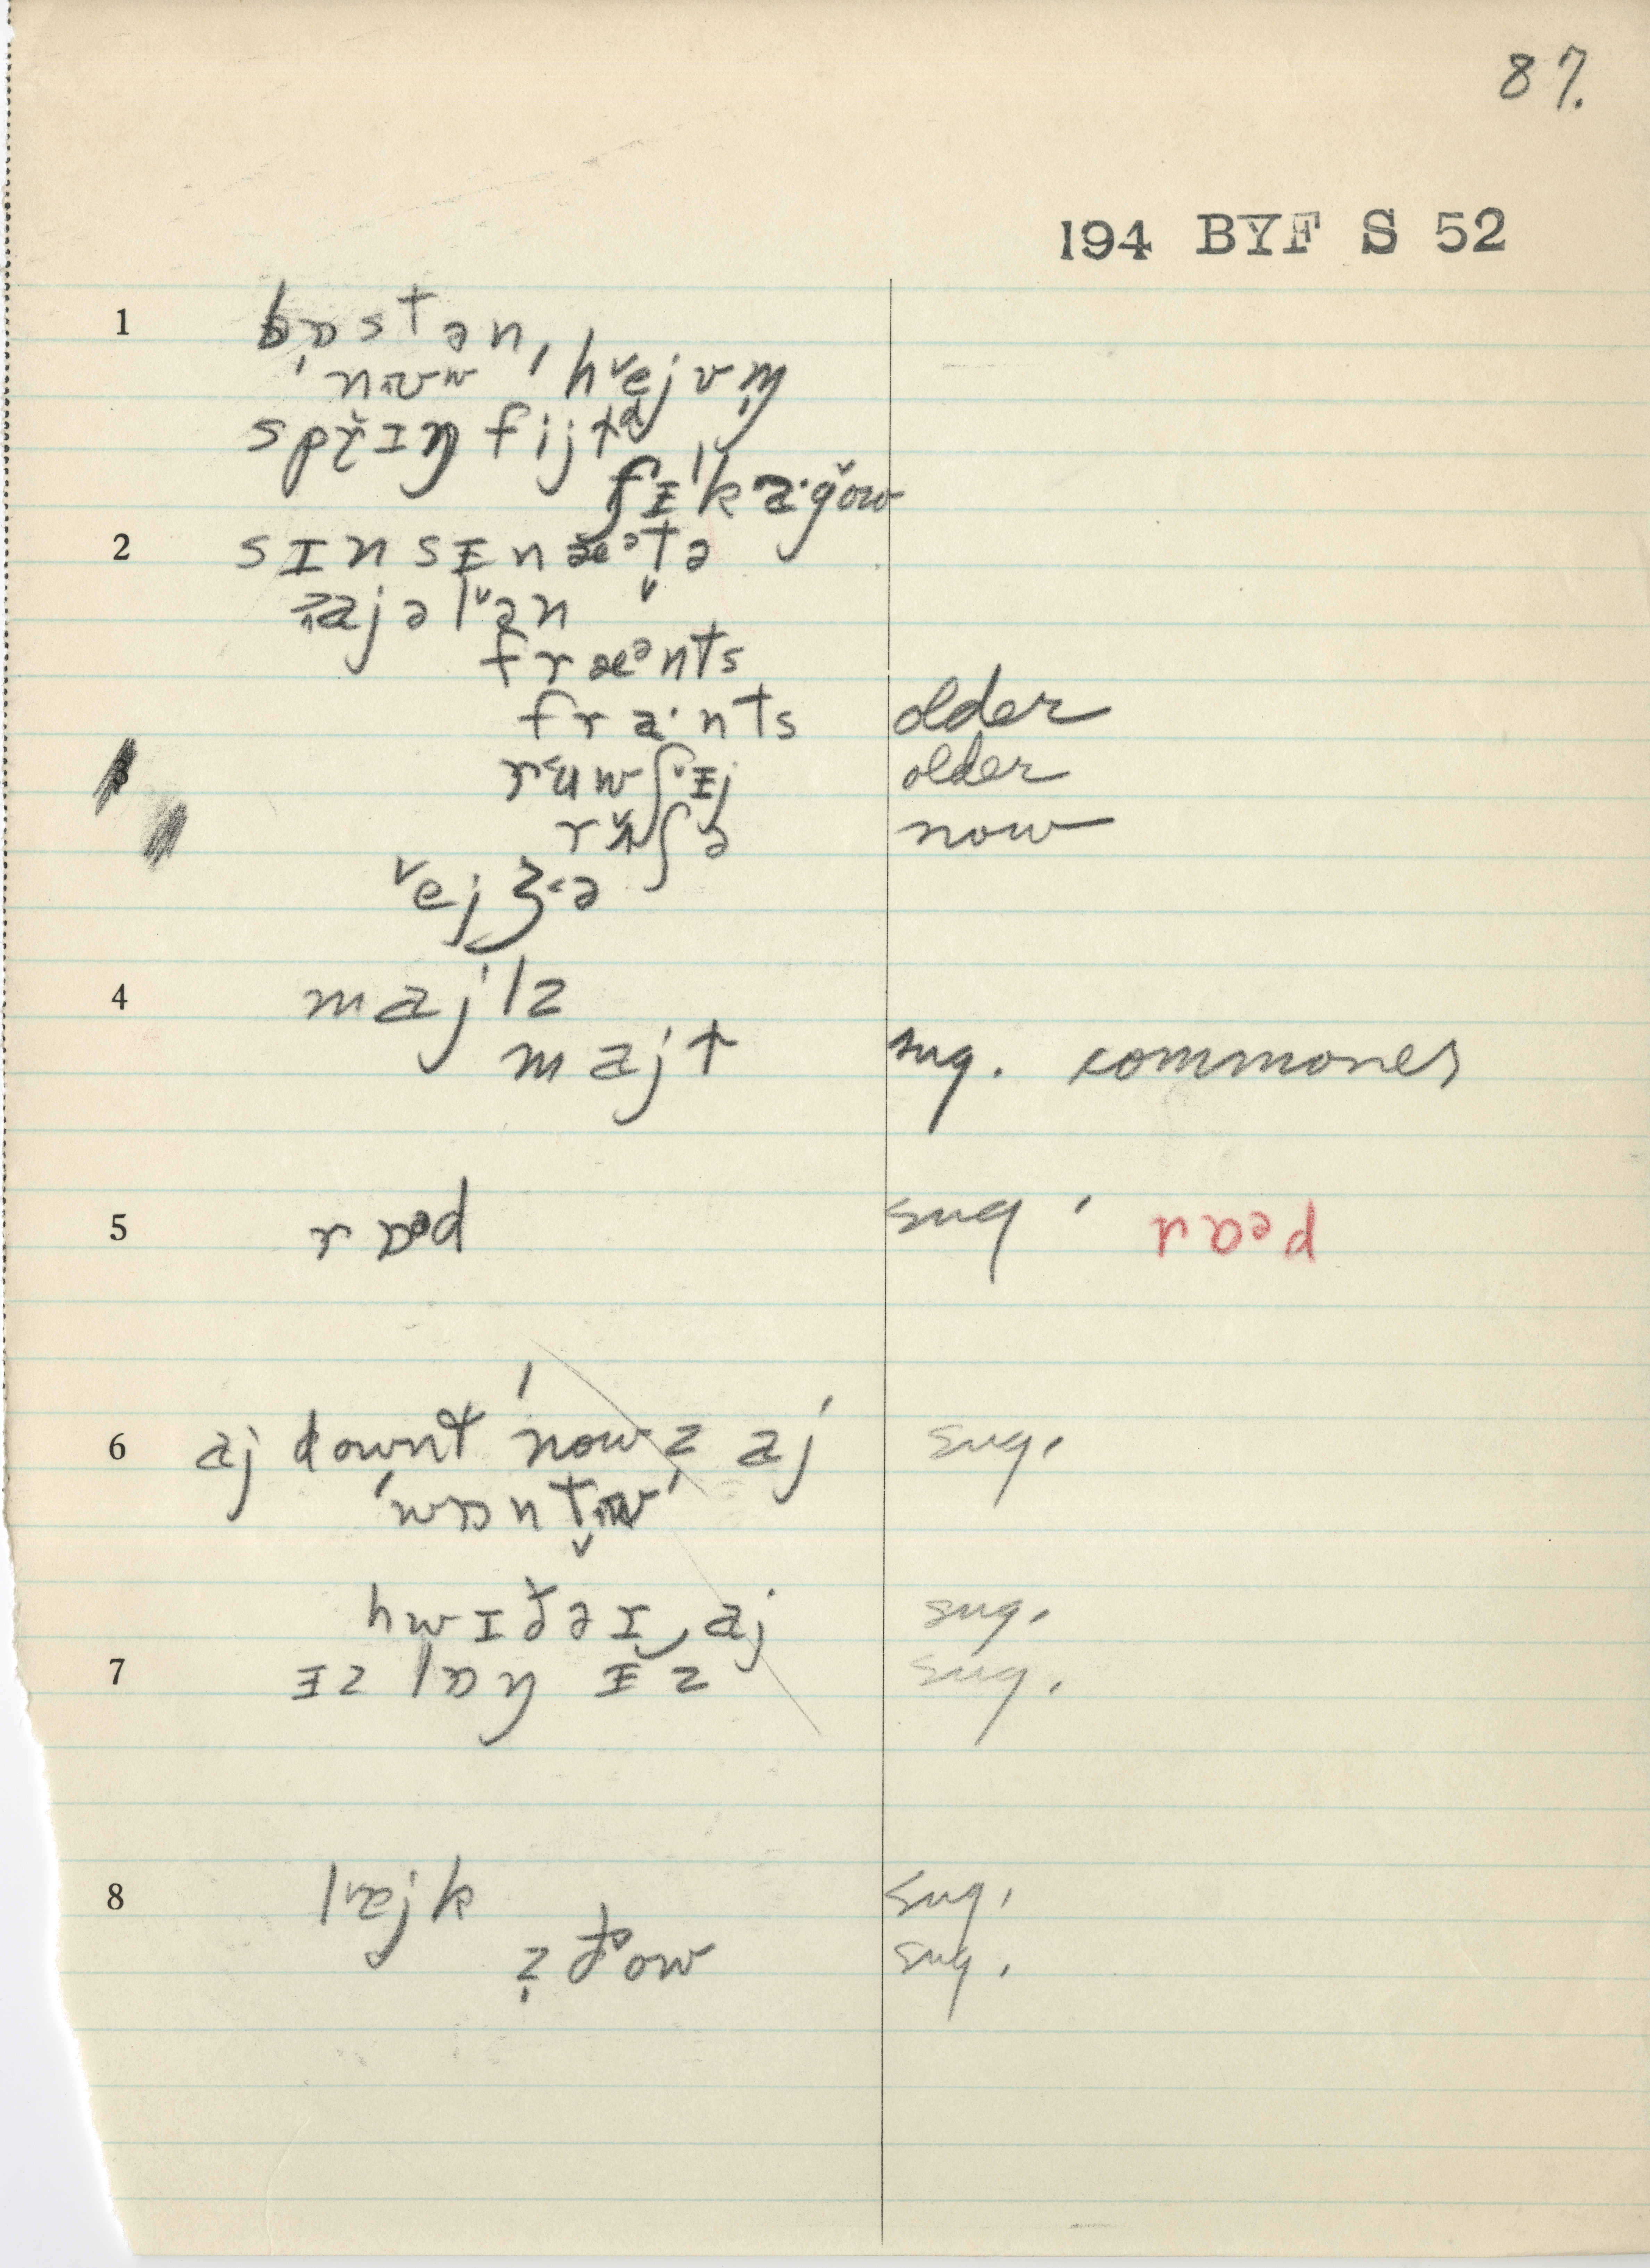 87.
194 BYF S 52
1 bɒstən,
ˈnʉʷ ˈhejvm̩
sprɪŋ fijɫd
ʃɪˈka·gow
2 sɪnsɪnæᵊtə
ajələn
fræᵊnts
fra·nts older
ruwʃɪj older
rʌʃə now
ejʒə
4 majlz
majɫ sug. commoner
5 rɒᵊd sug. rɑᵊd
6 aj downt ˈnowz aj sug.
ˈwɒntʉw
hwɪðəɪ‿aj sug.
7 ɪz lɒŋ ɪz sug.
8 lajk sug.
z̩ ðow sug.